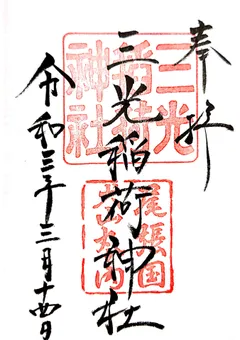 奉拝
三光稲荷神社
令和三年三月十四日
三光稲荷神社
尾張国犬山丸の内